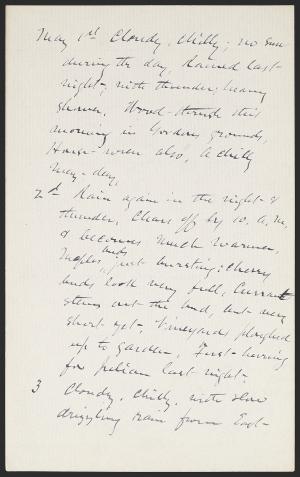 May 1st Cloudy, chilly; no sun
during the day, Rained last
night, with thunder; heavy
shower. Wood-thrush this
morning in Gordons grounds,
House-wren also, A chilly
May-day,
2d Rain again in the night &
thunder, Clears off by 10. A.M.
& becomes much warmer,
Maples buds just bursting; cherry
buds look very full, Currant
stems out the bud, but very
short yet. Vineyards ploughed
up to garden, First
for last night.
3 Cloudy, chilly, with slow
drizzling rain from East